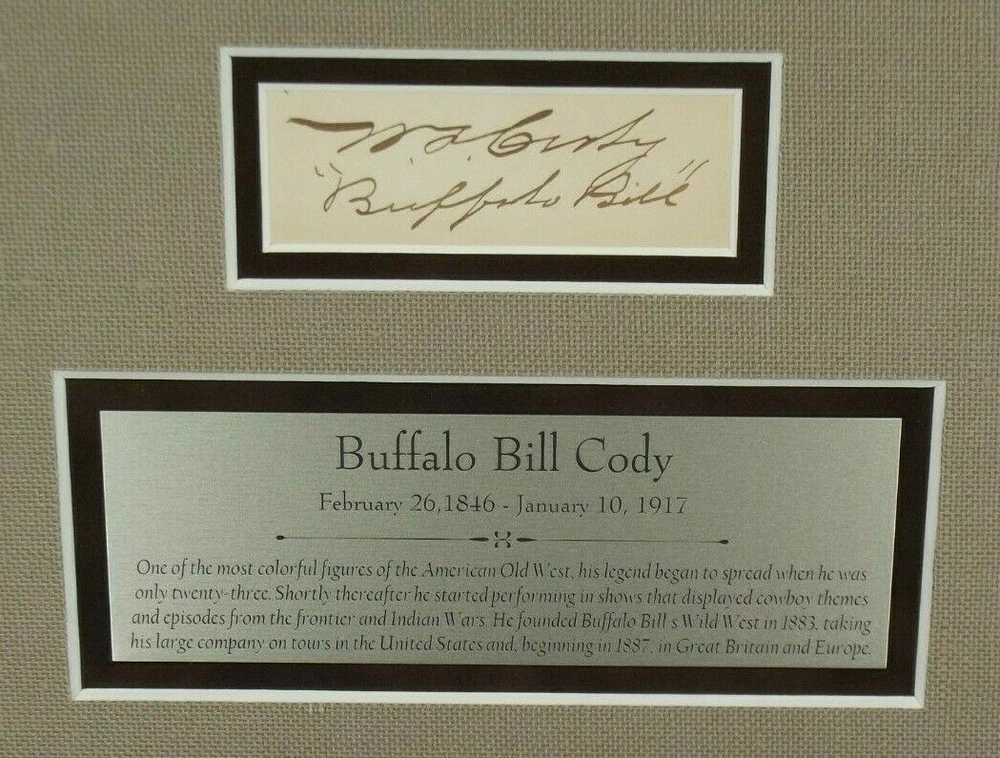 W. F. Cody
"Buffalo Bill"
Buffalo Bill Cody
February 26,1846 - January 10, 1917
One of the most colorful figures of the American Old West, his legend began to spread when he was
only twenty-three. Shortly thereafter he started performing in shows that displayed cowboy themes
and episodes from the frontier and Indian Wars. He founded Buffalo Bill s Wild West in 1883, taking
his large company on tours in the United States and, beginning in 1887, in Great Britain and Europe.